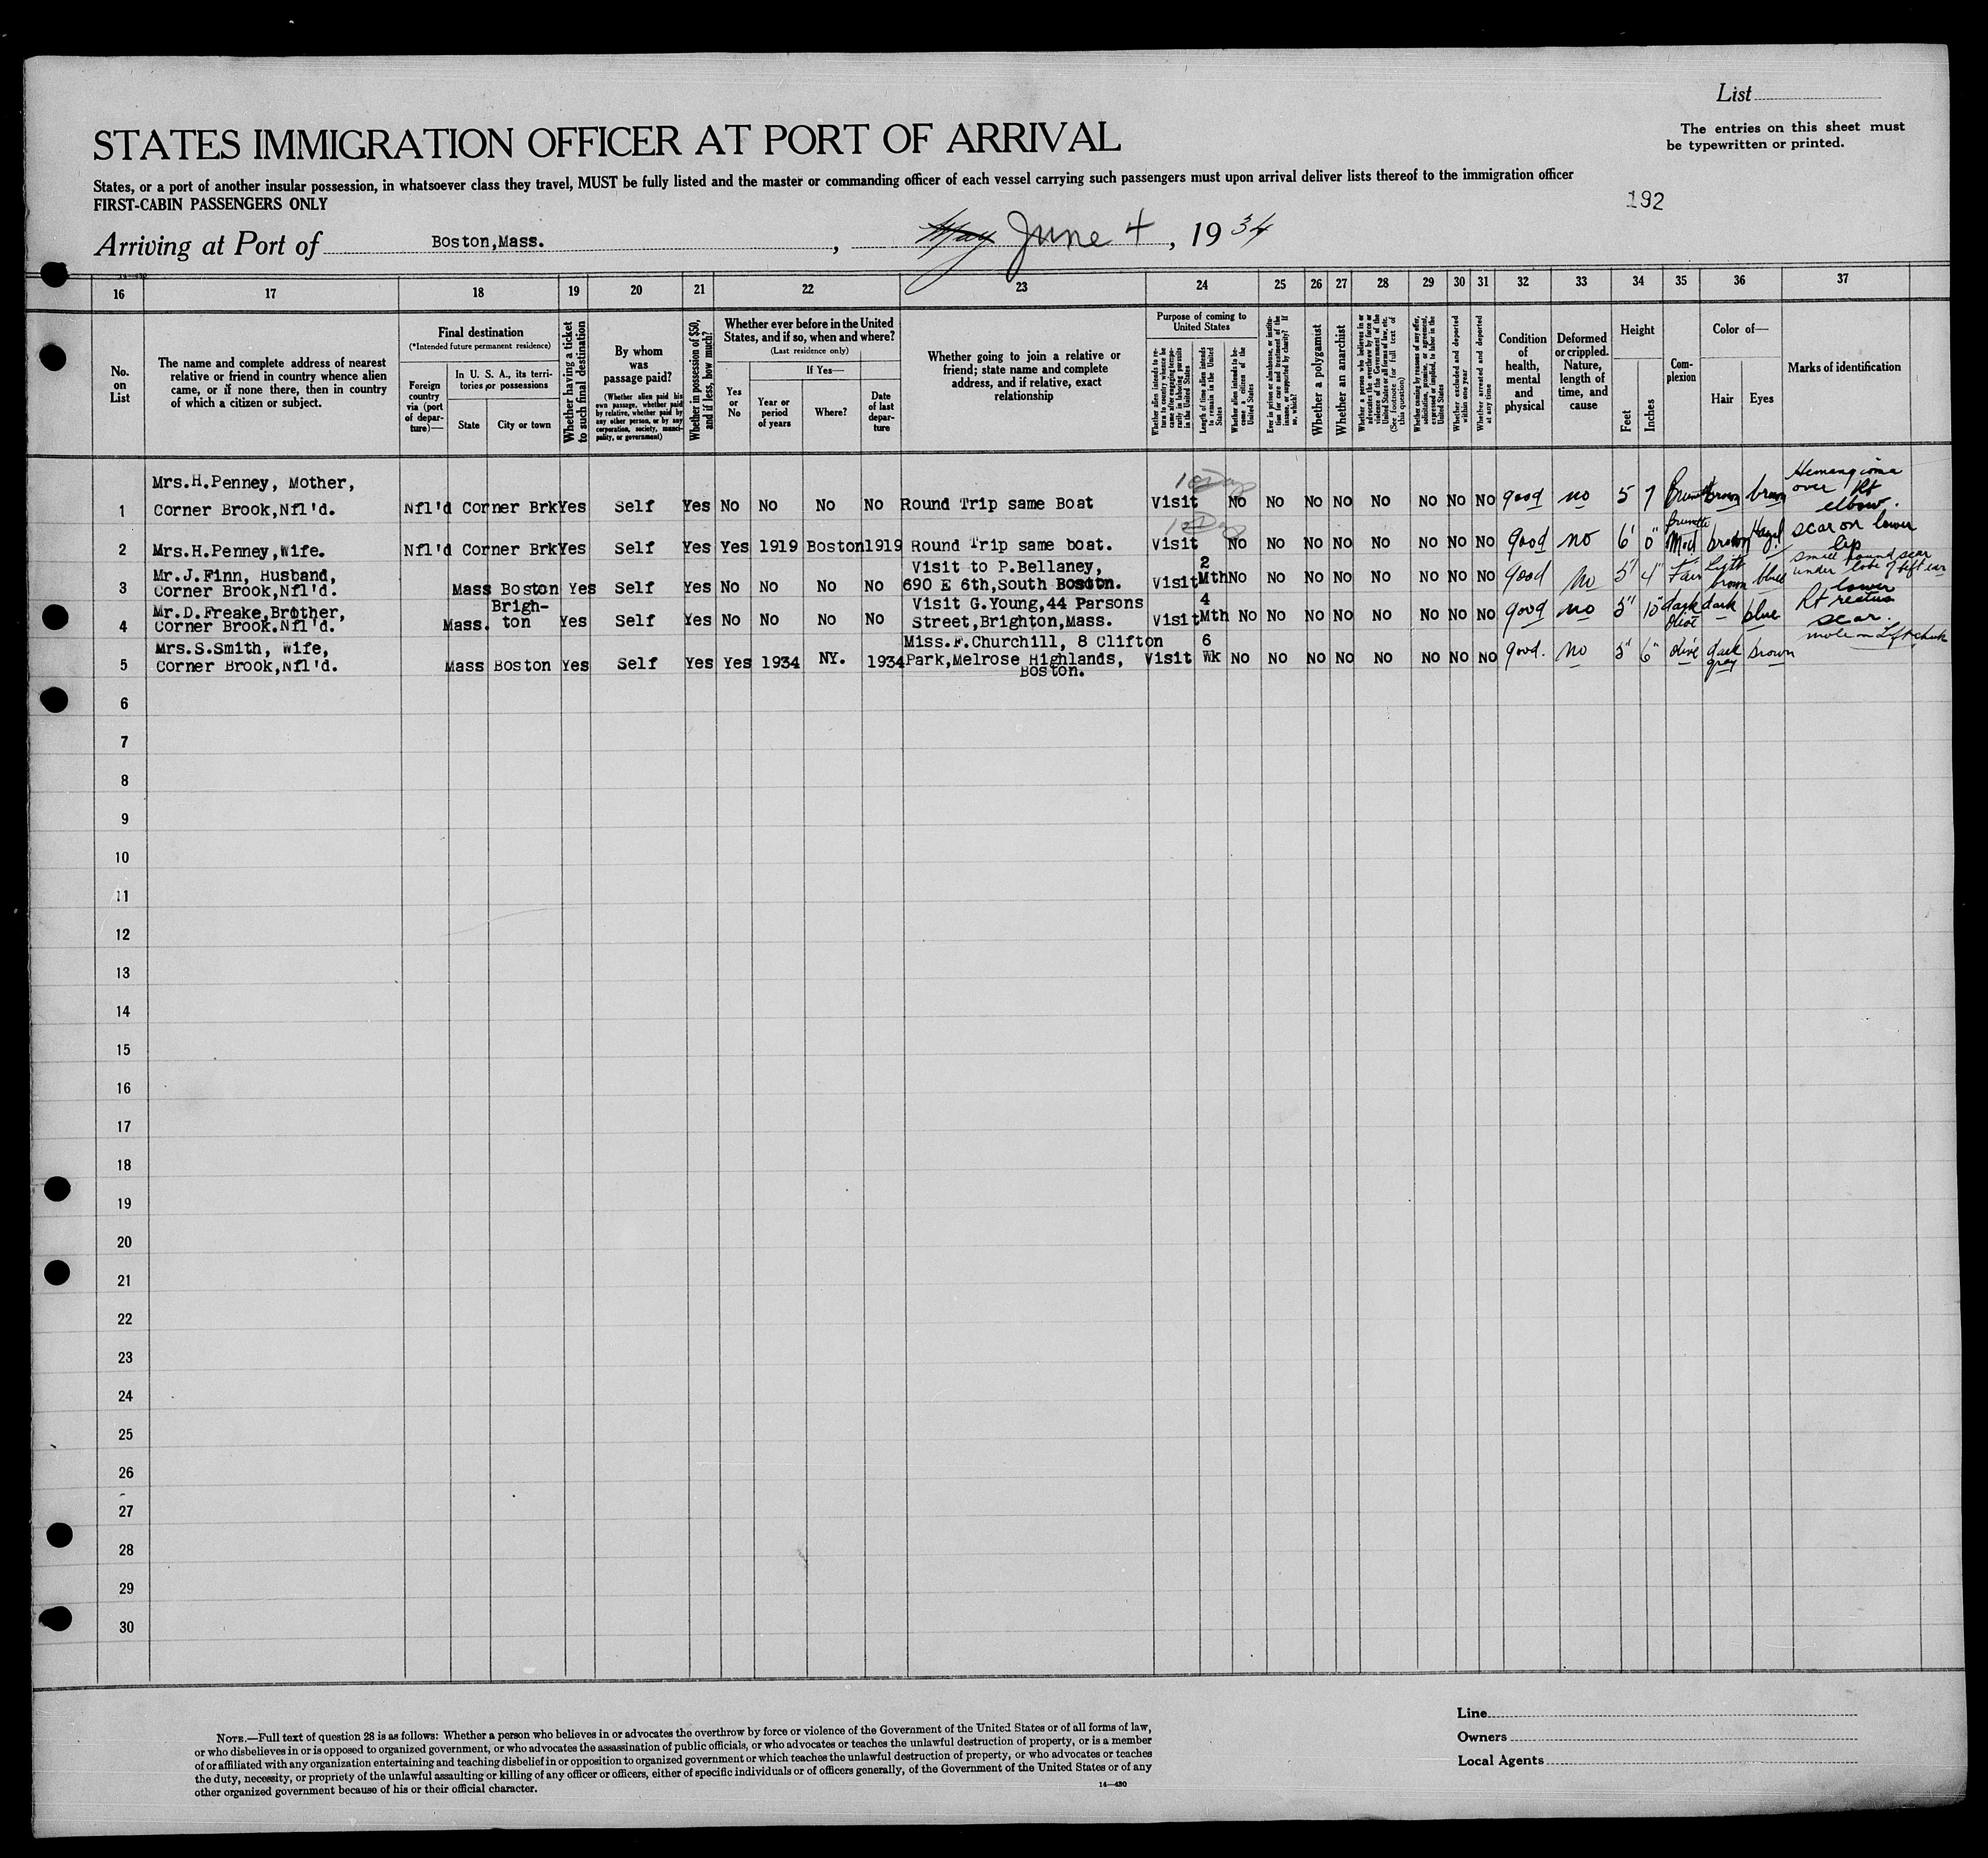 List
STATES IMMIGRATION OFFICER AT PORT OF ARRIVAL
The entries on this sheet must
be typewritten or printed.
States, or a port of another insular possession, in whatsoever class they travel, MUST be fully listed and the master or commanding officer of each vessel carrying such passengers must upon arrival deliver lists thereof to the immigration officer
FIRST-CABIN PASSENGERS ONLY
192
Arriving at Port of Boston,Mass. , May June 4, 1934
16 17 18 19 20 21 22 23 24 25 26 27 28 29 30 31 32 33 34 35 36 37
No. on List
The name and complete address of nearest
relative or friend in country whence alien
came, or if none there, then in country
of which a citizen or subject.
Final destination
(*Intended future permanent residence)
Foreign country via (port of departure)—
In U. S. A., its territories or possessions
State
City or town
Whether having a ticket to such final destination
By whom was passage paid?
(Whether alien paid his own passage, whether paid by relative, whether paid by any other person, or by any corporation, society, municipality, or government)
Whether in possession of $50, and if less, how much?
Whether ever before in the United
States, and if so, when and where?
(Last residence only)
Yes or No
If Yes—
Year or period of years
Where?
Date of last departure
Whether going to join a relative or
friend; state name and complete
address, and if relative, exact
relationship
Purpose of coming to
United States
Whether alien intends to return to country whence he came after engaging temporarily in laboring pursuits in the United States
Length of time alien intends to remain in the United States
Whether alien intends to become a citizen of the United States
Ever in prison or almshouse, or institution for care and treatment of the insane, or supported by charity? If so, which?
Whether a polygamist
Whether an anarchist
Whether a person who believes in or advocates the overthrow by force or violence of the Government of the United States or all forms of law, etc. (See footnote for full text of this question)
Whether coming by reasons of any offer, solicitation, promise, or agreement, expressed or implied, to labor in the United States
Whether excluded and deported within one year
Whether arrested and deported at any time
Condition of health, mental and physical
Deformed or crippled. Nature, length of time, and cause
Height
Feet
Inches
Complexion
Color of—
Hair
Eyes
Marks of identification
Mrs.H.Penney, Mother,
1 Corner Brook,Nfl'd. Nfl'd Corner Brk Yes Self Yes No No No No Round Trip same Boat Visit 1 Day No No No No No No No No good no 5 7 Brunette brown brown Hemangioma over Rt elbow.
2 Mrs.H.Penney,Wife. Nfl'd Corner Brk Yes Self Yes Yes 1919 Boston 1919 Round Trip same boat. Visit 1 Day No No No No No No No No good no 6' 0" brunette Med brown Hazel scar on lower lip
Mr.J.Finn, Husband, Visit to P.Bellaney, 2
3 Corner Brook,Nfl'd. Mass Boston Yes Self Yes No No No No 690 E 6th,South Boston. Visit Mth No No No No No No No No good no 5' 4" Fair Light brown blue small round scar under lobe of left ear
Mr.D.Freake,Brother, Brigh- Visit G.Young,44 Parsons 4
4 Corner Brook.Nfl'd. Mass. ton Yes Self Yes No No No No Street,Brighton,Mass. Visit Mth No No No No No No No No good no 5" 10" dark olive dark blue lower Rt rectus scar.
Mrs.S.Smith, Wife, Miss.F.Churchill, 8 Clifton 6
5 Corner Brook,Nfl'd. Mass Boston Yes Self Yes Yes 1934 NY. 1934 Park,Melrose Highlands, Visit Wk No No No No No No No No good. no 5" 6" olive dark gray brown mole on Left cheek
Boston.
6
7
8
9
10
11
12
13
14
15
16
17
18
19
20
21
22
23
24
25
26
27
28
29
30
NOTE.—Full text of question 28 is as follows: Whether a person who believes in or advocates the overthrow by force or violence of the Government of the United States or of all forms of law,
or who disbelieves in or is opposed to organized government, or who advocates the assassination of public officials, or who advocates or teaches the unlawful destruction of property, or is a member
of or affiliated with any organization entertaining and teaching disbelief in or opposition to organized government or which teaches the unlawful destruction of property, or who advocates or teaches
the duty, necessity, or propriety of the unlawful assaulting or killing of any officer or officers, either of specific individuals or of officers generally, of the Government of the United States or of any
other organized government because of his or their official character.
14—430
Line
Owners
Local Agents